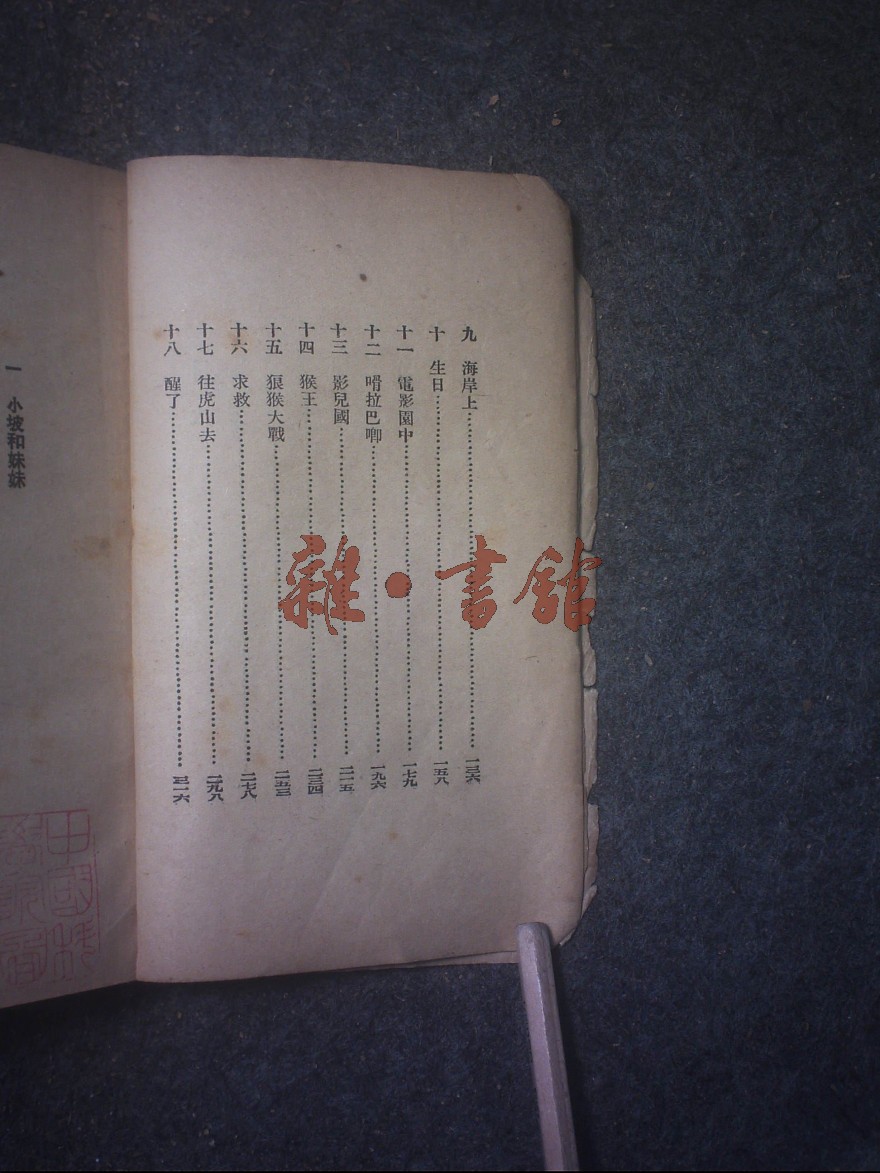 九 海岸上………一三六
十 生日………一五八
十一 電影園中………一七九
十二 嘈拉巴唧………一九六
十三 影兒國………二一五
十四 猴王………二三四
十五 狼猴大戰………二五三
十六 求救………二七八
十七 往虎山去………二九八
十八 醒了………三一六
一 小坡和妹妹
雜·書館